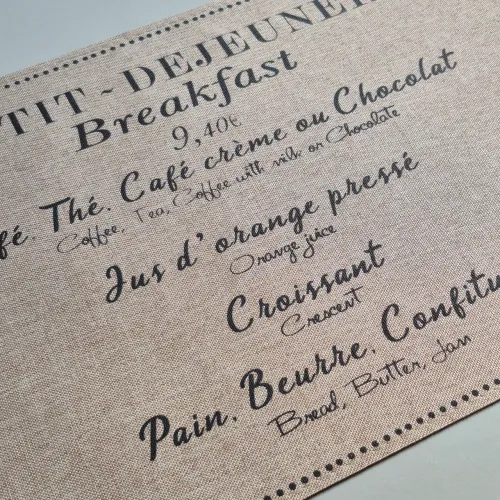 TIT ~ DEJEUNER
Breakfast
9,40€
fé. Thé. Café crème ou Chocolat
Coffee, Tea, Coffee with milk or Chocolate
Jus d' orange pressé
Orange juice
Croissant
Crescent
Pain. Beurre. Confitu
Bread, Butter, Jam